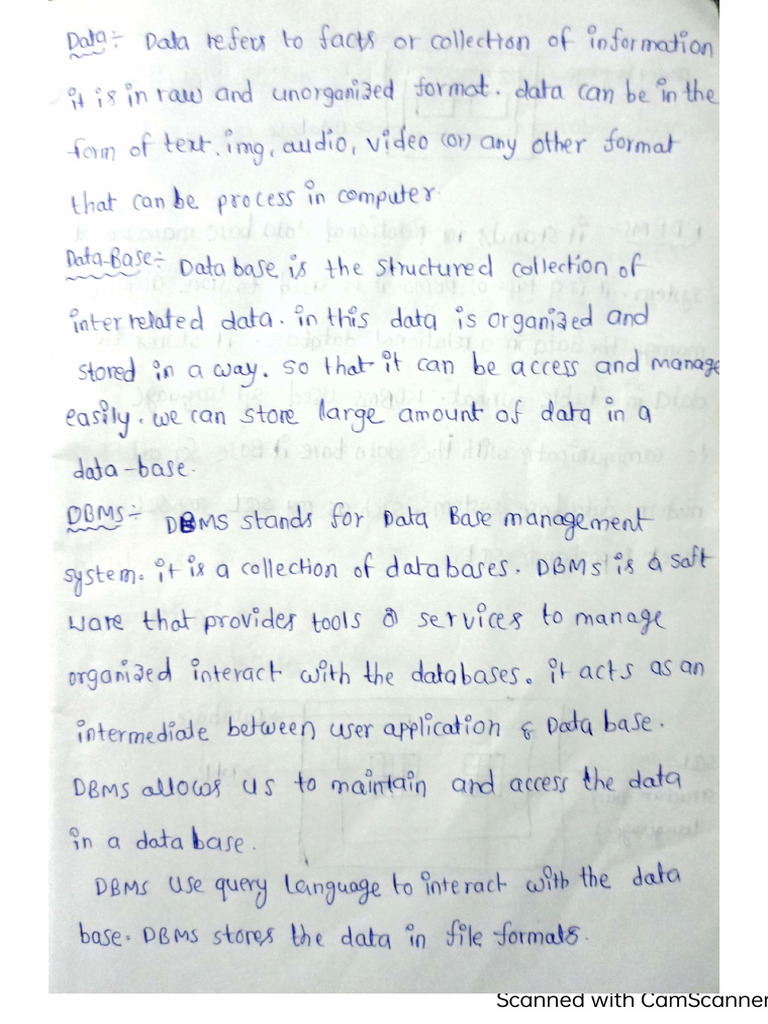 Data:- Data refers to facts or collection of information
it is in raw and unorganized format. data can be in the
form of text, img, audio, video (or) any other format
that can be process in computer.
Data-Base:- Data base is the structured collection of
inter related data. in this data is organized and
stored in a way. so that it can be access and manage
easily. we can store large amount of data in a
data-base.
DBMS:- DBMS stands for Data Base management
system. it is a collection of databases. DBMS is a soft
ware that provides tools & services to manage
organized interact with the databases. it acts as an
intermediate between user application & Data base.
DBMS allows us to maintain and access the data
in a data base.
DBMS use query language to interact with the data
base. DBMS stores the data in file formats.
Scanned with CamScanner